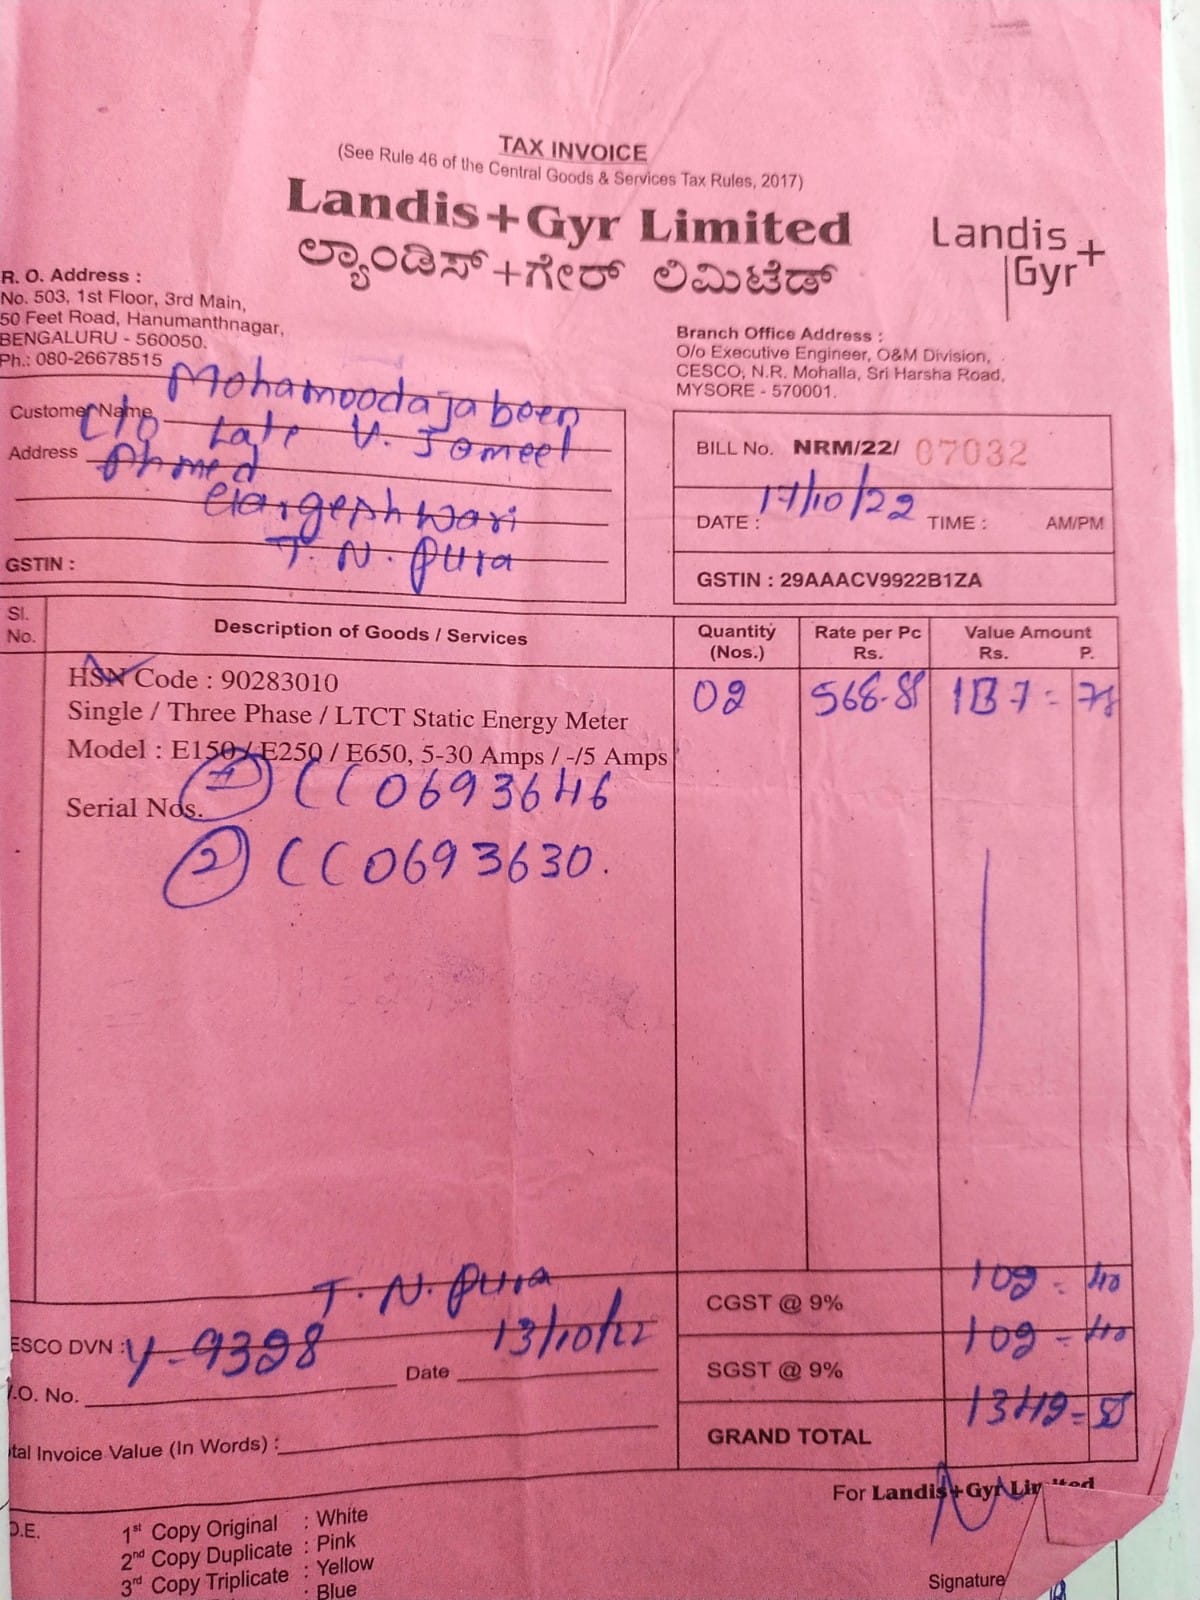 TAX INVOICE
(See Rule 46 of the Central Goods & Services Tax Rules, 2017)
Landis+Gyr Limited
ಲ್ಯಾಂಡಿಸ್+ಗೇರ್ ಲಿಮಿಟೆಡ್
Landis+
Gyr
R. O. Address :
No. 503, 1st Floor, 3rd Main,
50 Feet Road, Hanumanthnagar,
BENGALURU - 560050.
Ph.: 080-26678515
Branch Office Address :
O/o Executive Engineer, O&M Division,
CESCO, N.R. Mohalla, Sri Harsha Road,
MYSORE - 570001.
Customer Name Mohamoodajabeen
Address C/o Late V. Jameel
Ahmed
Gargeshwari
T. N. Pura
GSTIN :
BILL No. NRM/22/ 07032
DATE : 17/10/22 TIME : AM/PM
GSTIN : 29AAACV9922B1ZA
Sl. No. Description of Goods / Services Quantity (Nos.) Rate per Pc Rs. Value Amount Rs. P.
HSN Code : 90283010 02 568-88 1137=78
Single / Three Phase / LTCT Static Energy Meter
Model : E150 / E250 / E650, 5-30 Amps / -/5 Amps
Serial Nos. 1 CC0693646
2 CC0693630.
T. N. Pura
CGST @ 9% 102=40
ESCO DVN : Y-9328 13/10/22
SGST @ 9% 102=40
.O. No. Date
GRAND TOTAL 1342=58
tal Invoice Value (In Words) :
For Landis+Gyr Limited
O.E.
1st Copy Original : White
2nd Copy Duplicate : Pink
3rd Copy Triplicate : Yellow
: Blue
Signature